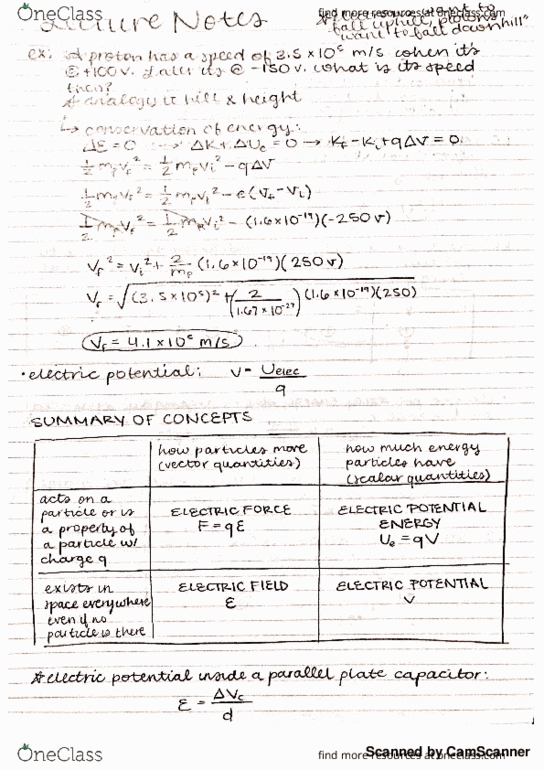 OneClass
find more resources at oneclass.com
Lecture Notes
fall uphill, protons
want to fall downhill"
ex: A proton has a speed of 3.5 × 10⁵ m/s when it's
@ +100 V. Later its @ -150 V. what is its speed
then?
* analogy to hill & height
↳ conservation of energy:
ΔE = 0 → ΔK + ΔUe = 0 → Kf - Ki + qΔV = 0
½ mpvf² = ½ mpvi² - qΔV
½ mpvf² = ½ mpvi² - e(Vf - Vi)
½ mpvf² = ½ mpvi² - (1.6 × 10⁻¹⁹)(-250 V)
Vf² = Vi² + 2/mp (1.6 × 10⁻¹⁹)(250 V)
Vf = √((3.5 × 10⁵)² + (2/1.67 × 10⁻²⁷)(1.6 × 10⁻¹⁹)(250)
Vf = 4.1 × 10⁵ m/s
• electric potential: V = Uelec/q
SUMMARY OF CONCEPTS
how particles move
(vector quantities)
how much energy
particles have
(scalar quantities)
acts on a
particle or is
a property of
a particle w/
charge q
ELECTRIC FORCE
F = qE
ELECTRIC POTENTIAL
ENERGY
Ue = qV
exists in
space everywhere
even if no
particle is there
ELECTRIC FIELD
E
ELECTRIC POTENTIAL
V
* electric potential inside a parallel plate capacitor:
E = ΔVc/d
OneClass
find more resources at oneclass.com
Scanned by CamScanner